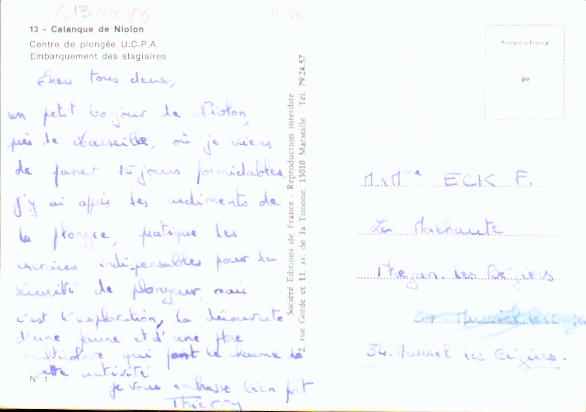 13 - Calanque de Niolon
Centre de plongée U.C.P.A.
Embarquement des stagiaires
Chers tous deux,
un petit bonjour de Niolon,
près de Marseille, où je viens
de passer 15 jours formidables
J'y ai appris les rudiments de
la plongée, pratiqué les
exercices indispensables pour la
sécurité du plongeur, mais
c'est l'exploration, la découverte
d'une faune et d'une flore
multicolore qui font le charme de
cette activité
je vous embrasse bien fort
Thierry
N° 1
Société Editions de France - Reproduction interdite
2, rue Gorde et 11, av. de la Timone, 13010 Marseille - Tél. 79.24.57
M. Mme ECK F.
La
Thézan les Béziers
34. les Béziers.